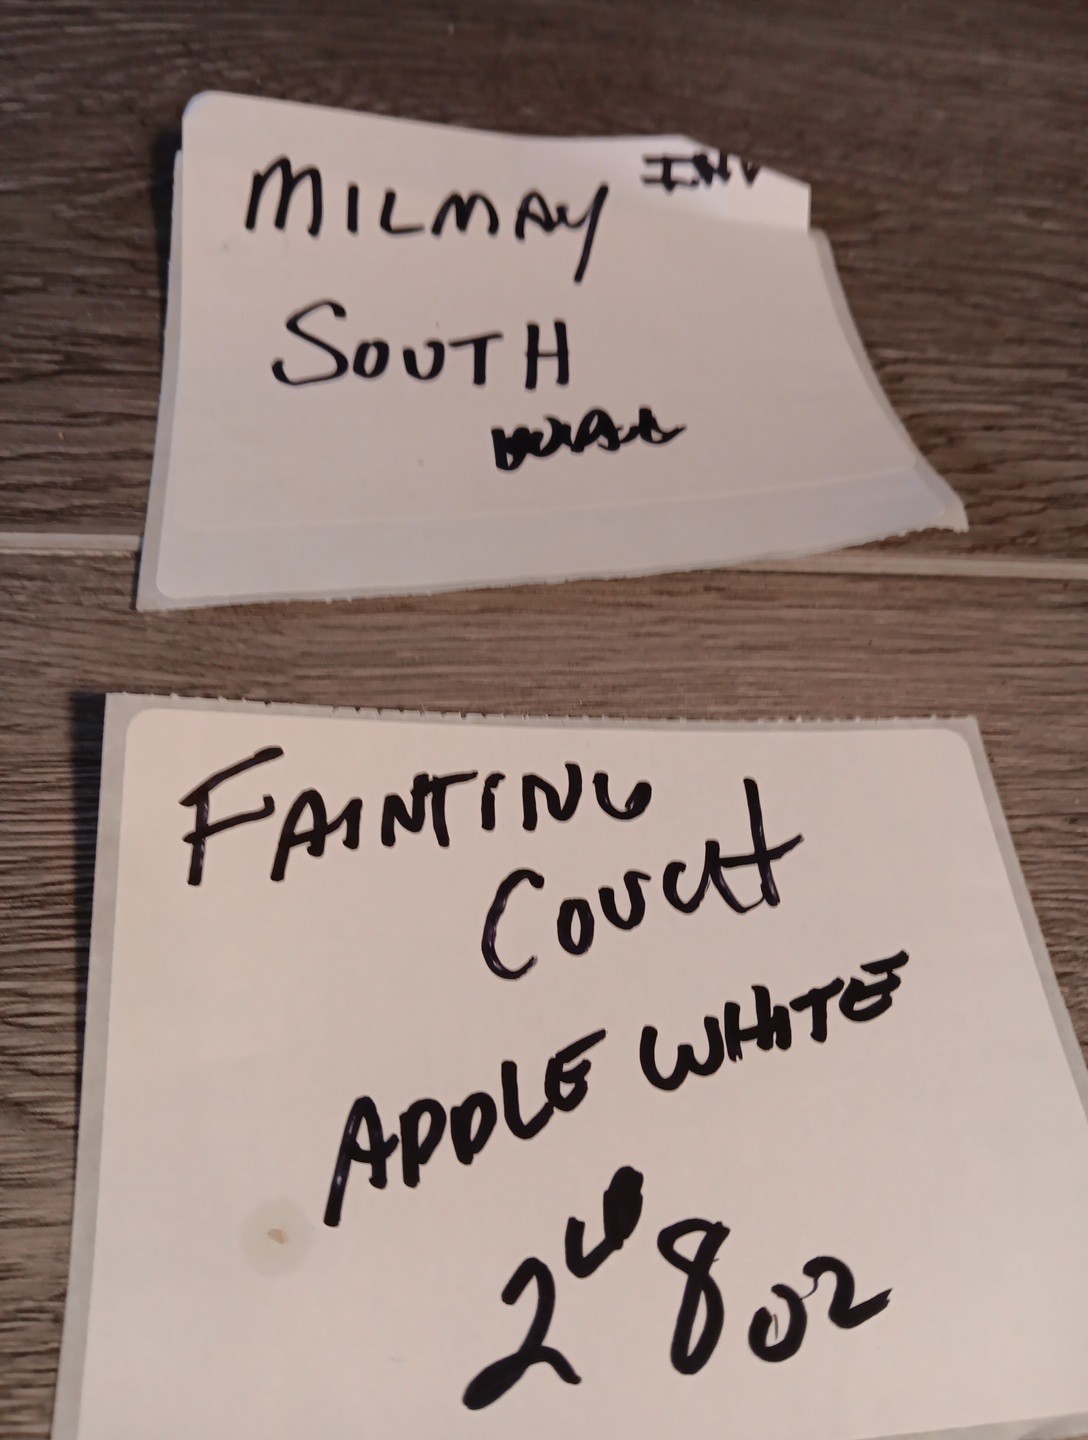 MILMAY INV
SOUTH
WALL
FAINTING
COUCH
APPLE WHITE
2 LB 8 OZ